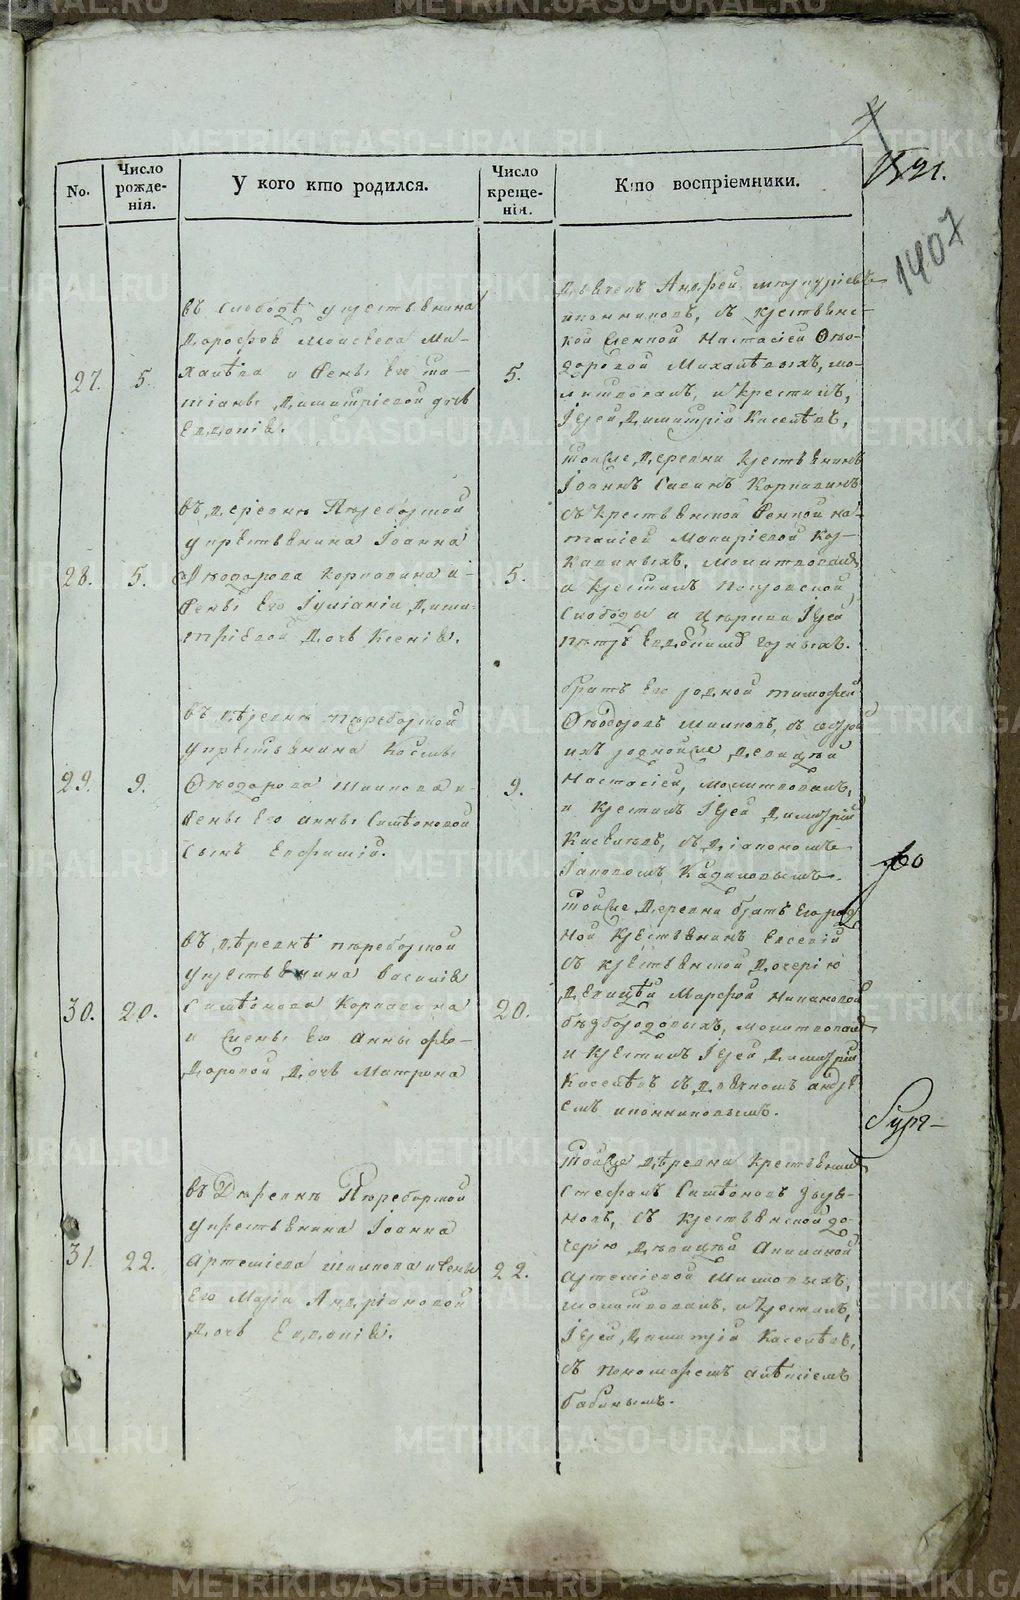 1521.
1407
No.
Число рожденія.
У кого кто родился.
Число крещенія.
Кто воспріемники.
27.
5.
въ Слободѣ у крестьянина
Дорофея Моисеева Ми-
хаилова и жены его Та-
тіаны Димитріевой дочь
Евдокія.
5.
Дьячекъ Андрей
Иконниковъ, съ крестьянс-
кой женкой Настасіей Ѳео-
доровой Михайловыхъ, мо-
литвовалъ, и крестилъ,
Іерей Димитрій Киселевъ,
28.
5.
въ деревнѣ Переборской
у крестьянина Іоанна
Ѳеодорова Корнавина и
жены его Іуліаніи Дими-
тріевой Дочь Ксенія.
5.
тойже Деревни крестьянинъ
Іоаннъ Савинъ Корнавинъ
съ крестьянской женкой На-
таліей Макаріевой Кор-
навиныхъ, молитвовалъ
и крестилъ Покровской
Слободы и церкви Іерей
Петръ
29.
9.
въ деревнѣ Переборской
у крестьянина Космы
Ѳеодорова Шипкова и
жены его Анны Симеоновой
Сынъ Евфимій.
9.
братъ его родной Тимофей
Ѳеодоровъ Шипковъ, съ сестрой
ихъ роднойже девицей
Настасіей, молитвовалъ,
и крестилъ Іерей Димитрій
Киселевъ, съ Діакономъ
Іаковомъ Кадиловымъ.
30.
20.
въ деревнѣ Переборской
у крестьянина Василія
Симеонова Корнавина
и жены его Анны Фео-
доровой Дочь Матрона
20.
тойже Деревни братъ его род
ной крестьянинъ Евсевій
съ крестьянской Дочерію
Девицей Марфой
Безбородовыхъ, молитвовалъ
и крестилъ Іерей Димитрій
Киселевъ съ Дьячкомъ Андре
емъ Иконниковымъ.
31.
22.
въ Деревнѣ Переборской
у крестьянина Іоанна
Артеміева Шипкова и жены
его Маріи Андріановой
Дочь Евдокія.
22.
тойже деревни крестьянинъ
Стефанъ Симеоновъ
съ крестьянской до-
черію Девицей Акилиной
Артеміевой Шипковыхъ,
молитвовалъ, и крестилъ,
Іерей Димитрій Киселевъ,
съ Пономаремъ Алексіемъ
Бабинымъ.
METRIKI.GASO-URAL.RU